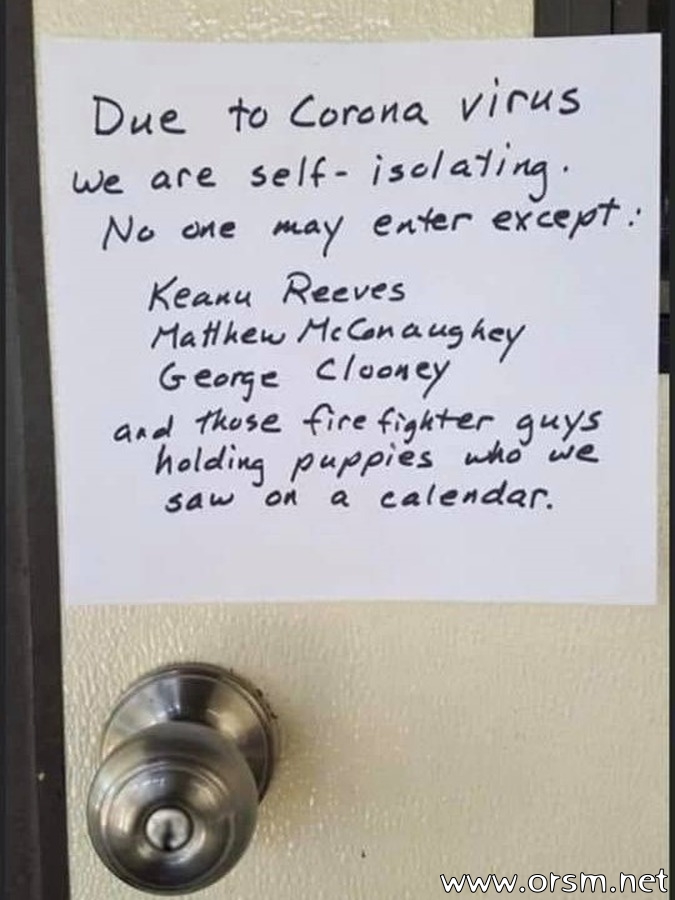 Due to Corona virus
we are self-isolating.
No one may enter except:
Keanu Reeves
Matthew McConaughey
George Clooney
and those firefighter guys
holding puppies who we
saw on a calendar.
www.orsm.net